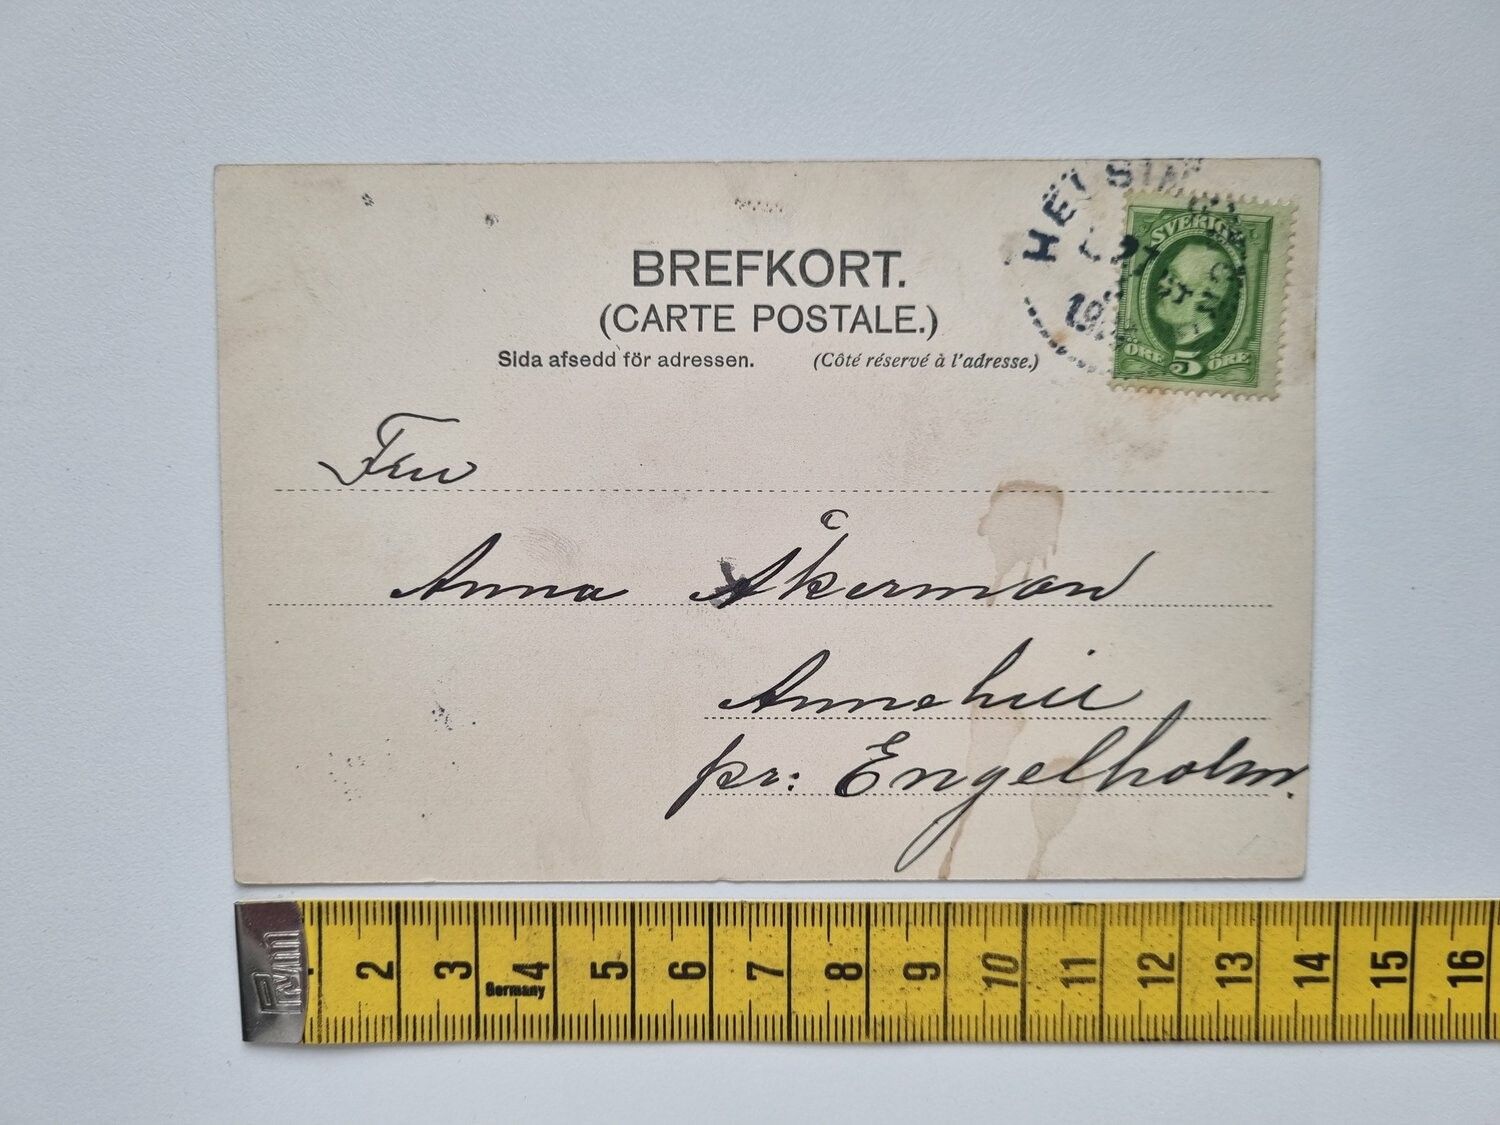 HELSING
BORG
SVERIGE
ÖRE 5 ÖRE
BREFKORT.
(CARTE POSTALE.)
Sida afsedd för adressen. (Côté réservé à l'adresse.)
Fru
Anna Åkerman
Annehill
pr: Engelholm.
Prym
2 3 4 5 6 7 8 9 10 11 12 13 14 15 16
Germany